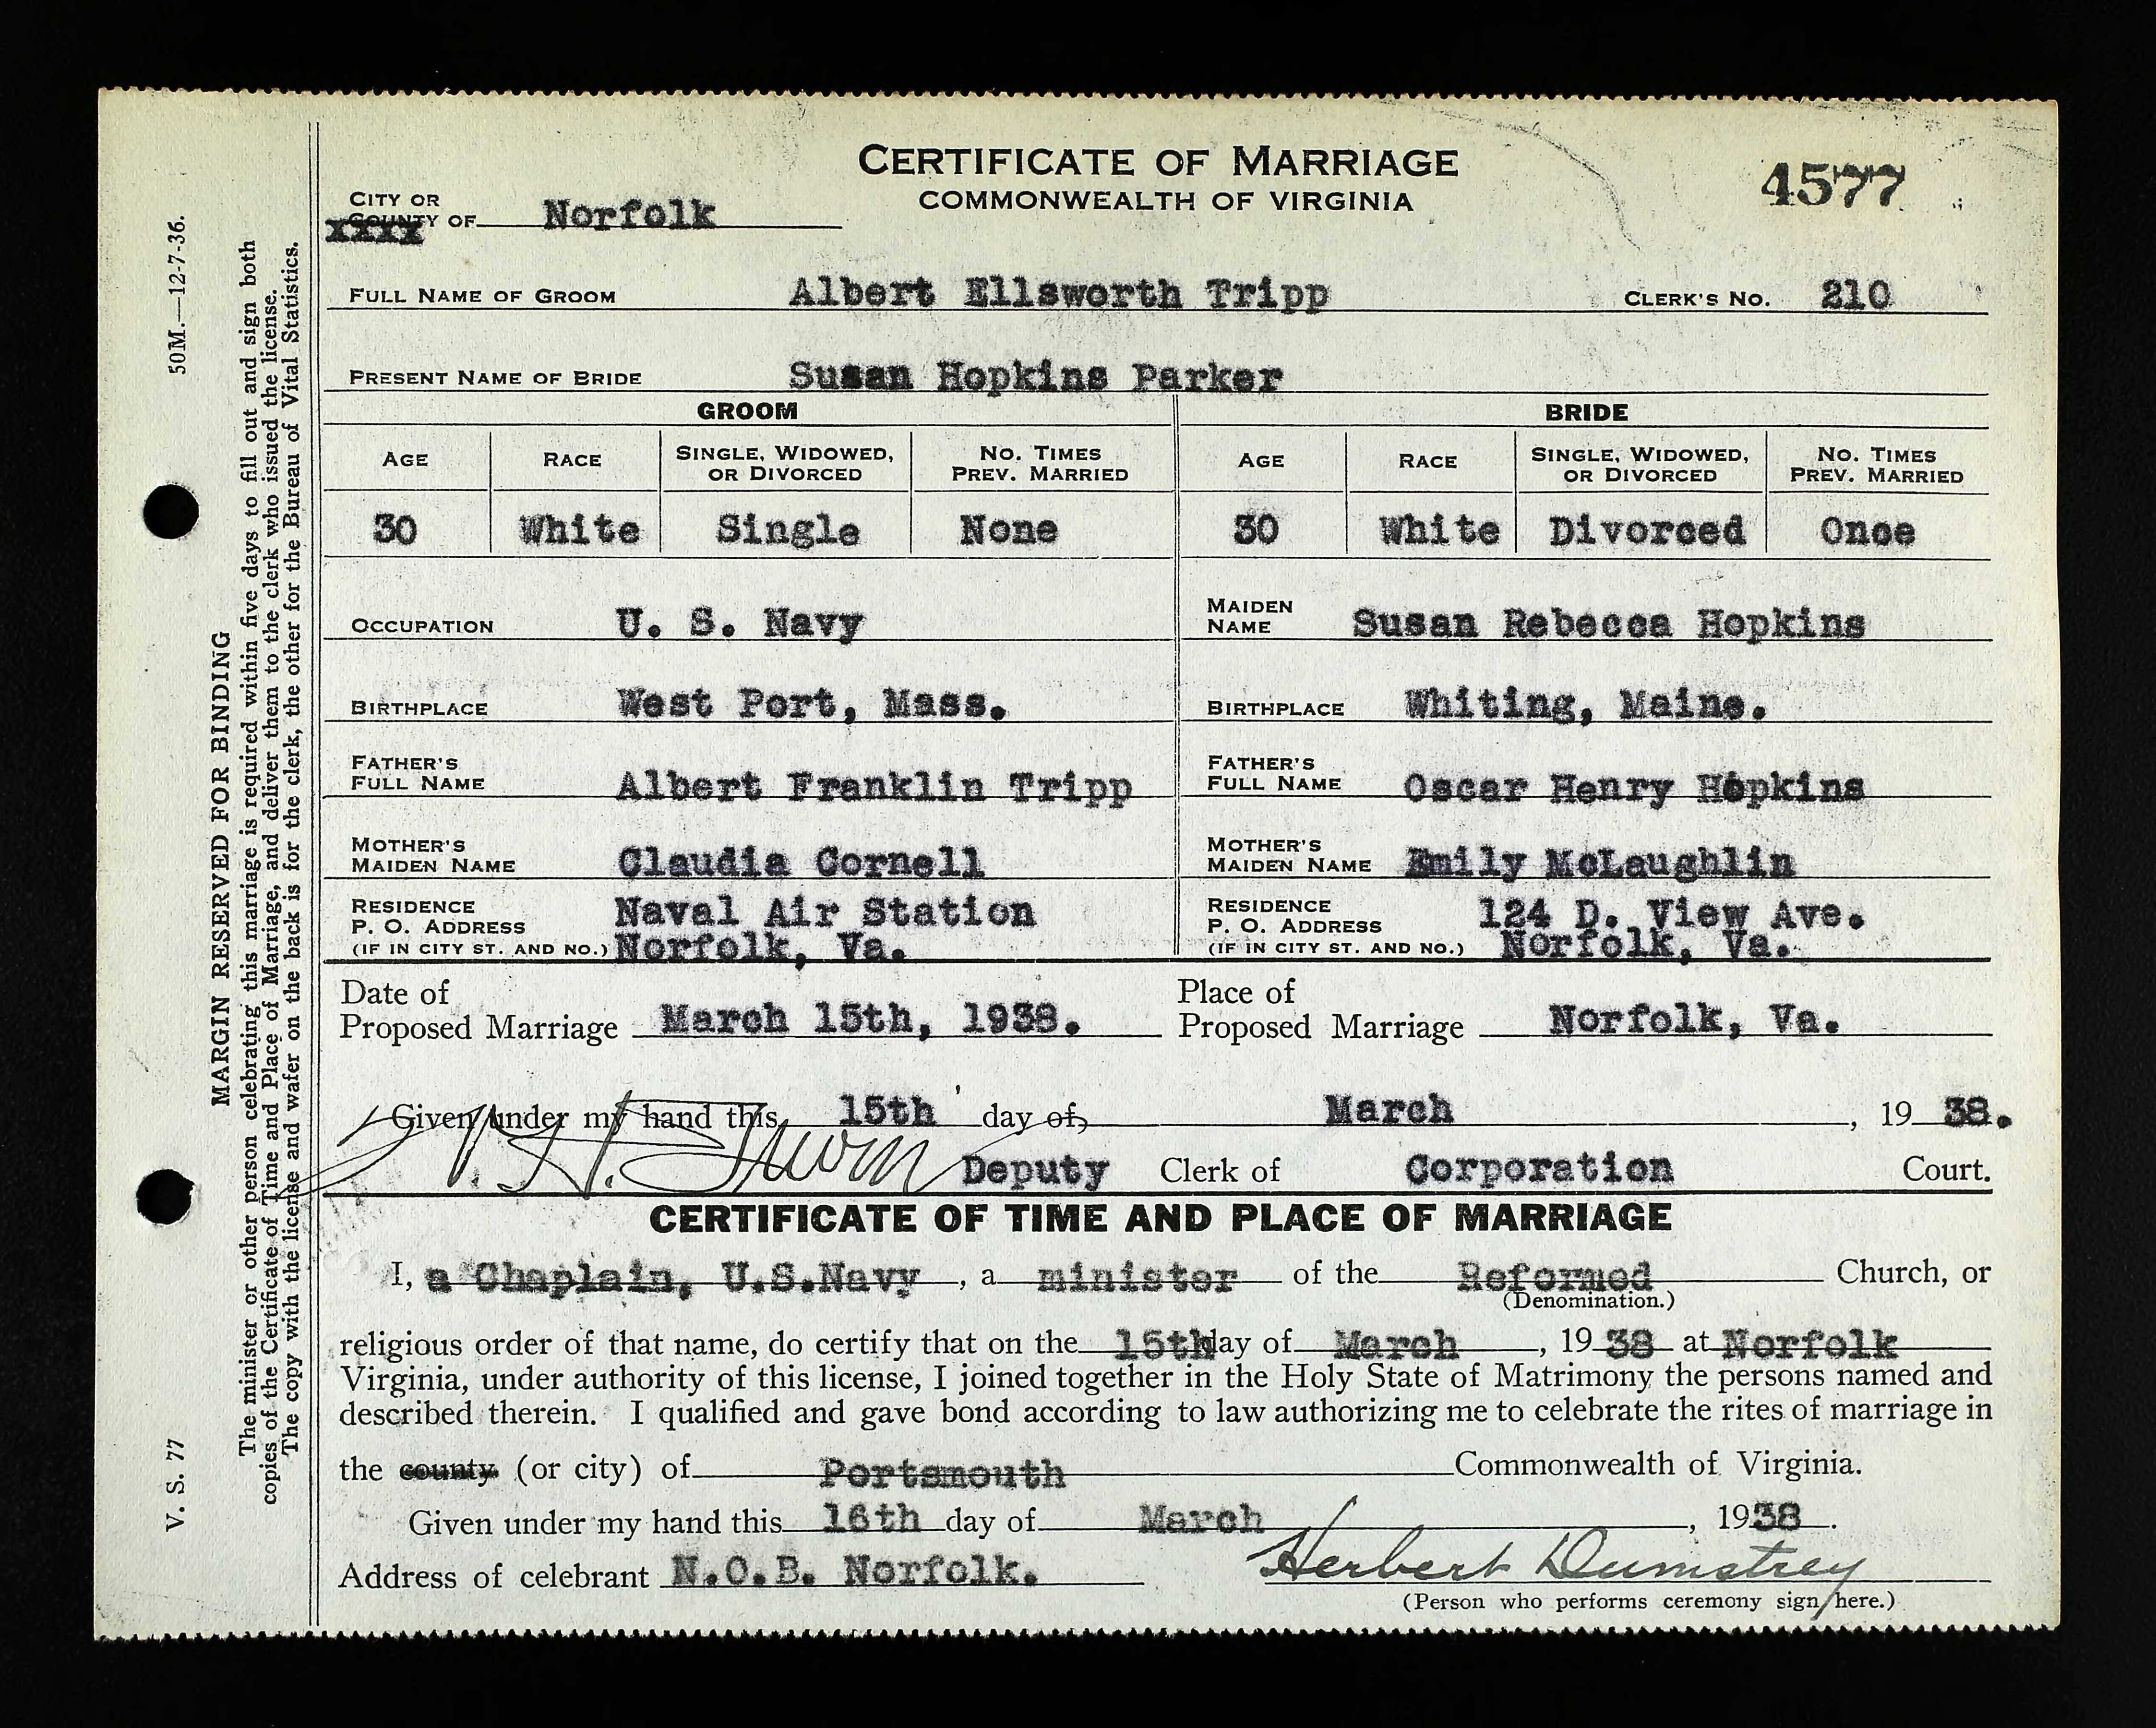 CERTIFICATE OF MARRIAGE
COMMONWEALTH OF VIRGINIA
4577
CITY OR
COUNTY OF Norfolk
xxxx
FULL NAME OF GROOM Albert Ellsworth Tripp CLERK'S NO. 210
PRESENT NAME OF BRIDE Susan Hopkins Parker
GROOM BRIDE
AGE RACE SINGLE, WIDOWED, OR DIVORCED NO. TIMES PREV. MARRIED AGE RACE SINGLE, WIDOWED, OR DIVORCED NO. TIMES PREV. MARRIED
30 White Single None 30 White Divorced Once
OCCUPATION U. S. Navy MAIDEN NAME Susan Rebecca Hopkins
BIRTHPLACE West Port, Mass. BIRTHPLACE Whiting, Maine.
FATHER'S FULL NAME Albert Franklin Tripp FATHER'S FULL NAME Oscar Henry Hopkins
MOTHER'S MAIDEN NAME Claudia Cornell MOTHER'S MAIDEN NAME Emily McLaughlin
RESIDENCE P. O. ADDRESS (IF IN CITY ST. AND NO.) Naval Air Station Norfolk, Va. RESIDENCE P. O. ADDRESS (IF IN CITY ST. AND NO.) 124 D. View Ave. Norfolk, Va.
Date of Proposed Marriage March 15th, 1938. Place of Proposed Marriage Norfolk, Va.
Given under my hand this 15th day of March, 19 38.
Deputy Clerk of Corporation Court.
CERTIFICATE OF TIME AND PLACE OF MARRIAGE
I, a Chaplain, U.S.Navy, a minister of the Reformed Church, or
(Denomination.)
religious order of that name, do certify that on the 15th day of March, 19 38 at Norfolk
Virginia, under authority of this license, I joined together in the Holy State of Matrimony the persons named and
described therein. I qualified and gave bond according to law authorizing me to celebrate the rites of marriage in
the county (or city) of Portsmouth Commonwealth of Virginia.
Given under my hand this 16th day of March, 1938.
Address of celebrant N.O.B. Norfolk. Herbert Dumstrey
(Person who performs ceremony sign here.)
50M.—12-7-36.
V. S. 77
MARGIN RESERVED FOR BINDING
The minister or other person celebrating this marriage is required within five days to fill out and sign both
copies of the Certificate of Time and Place of Marriage, and deliver them to the clerk who issued the license.
The copy with the license and wafer on the back is for the clerk, the other for the Bureau of Vital Statistics.